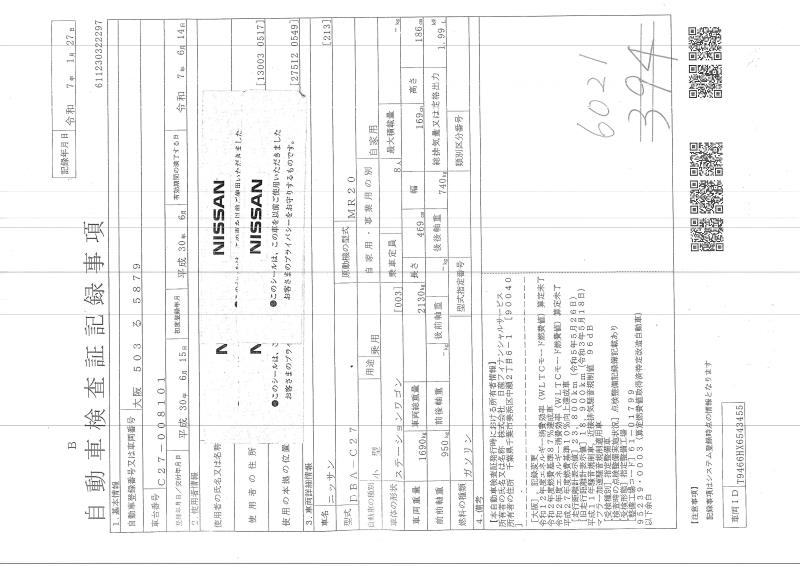 B
自動車検査証記録事項
記録年月日 令和 7年 1月 27日
611230322297
1.基本情報
自動車登録番号又は車両番号 大阪 503 る 5879
車台番号 C27-008101
登録年月日/交付年月日 平成 30年 6月 15日 初度登録年月 平成 30年 6月 有効期間の満了する日 令和 7年 6月 14日
2.使用者情報
使用者の氏名又は名称
使用者の住所 [13003 0517]
使用の本拠の位置 [27512 0549]
NISSAN
●このシールは、この車を以前ご使用いただきました
NISSAN
●このシールは、この車を以前ご使用いただきました
お客さまのプライバシーをお守りするものです。
3.車両詳細情報
車名 ニッサン [213]
型式 DBA-C27 原動機の型式 MR20
自動車の種別 小型 用途 乗用 自家用・事業用の別 自家用
車体の形状 ステーションワゴン [003] 乗車定員 8人 最大積載量 -kg
車両重量 1690kg 車両総重量 2130kg 長さ 469cm 幅 169cm 高さ 186cm
前前軸重 950kg 前後軸重 -kg 後前軸重 -kg 後後軸重 740kg 総排気量又は定格出力 1.99L
燃料の種類 ガソリン 型式指定番号 類別区分番号
4.備考
【本自動車検査証発行時における所有者情報】
所有者の氏名又は名称 株式会社 日産フィナンシャルサービス
所有者の住所 千葉県千葉市美浜区中瀬2丁目6-1 [90040
]
[大阪], 記録変更
令和12年度エネルギー消費効率(WLTCモード燃費値)算定未了
令和2年度燃費基準87%達成車
令和2年度エネルギー消費効率(WLTCモード燃費値)算定未了
平成27年度燃費基準10%向上達成車
[走行距離計表示値] 23,800km(令和5年5月26日)
[旧走行距離計表示値] 8,900km(令和3年5月18日)
平成10年騒音規制車、近接排気騒音規制値 96dB
マフラー加速騒音規制適用車
[受検種別] 指定整備車
[検査時の点検整備実施状況] 点検整備記録簿記載あり
[受検形態] 指定整備工場
95239・0003(算定燃費値取得済特定改造自動車)
以下余白
6021
394
【注意事項】
記録事項はシステム登録時点の情報となります
車両ID T9466HX6543455